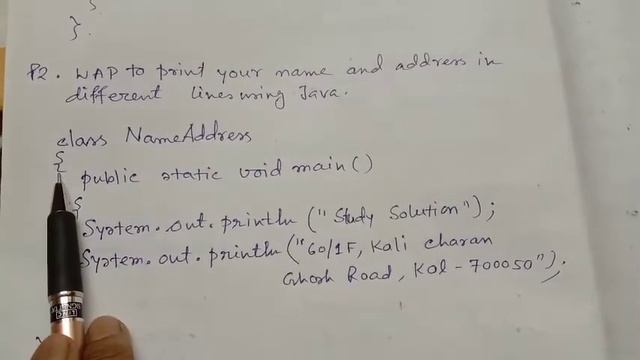 }
}.
P2. WAP to print your name and address in
different lines using Java.
class NameAddress
{
public static void main()
{
System.out.println ("Study Solution");
System.out.println ("60/1F, Kali charan
Ghosh Road, Kol - 700050");
}